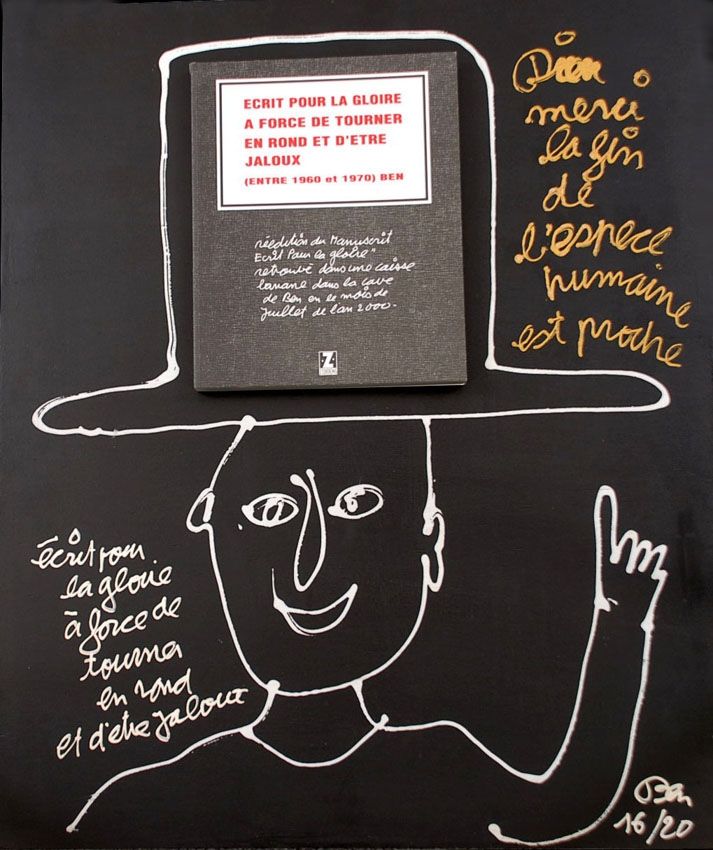 ECRIT POUR LA GLOIRE
A FORCE DE TOURNER
EN ROND ET D'ETRE
JALOUX
(ENTRE 1960 et 1970) BEN
réédition du Manuscrit
Ecrit Pour la gloire"
retrouvé dans une caisse
banane dans la cave
de Ben en le mois de
Juillet de l'an 2000.
Z
Dieu
merci
la fin
de
l'espece
humaine
est proche
écrit pour
la gloire
à force de
tourner
en rond
et d'etre Jaloux
Ben
16/20